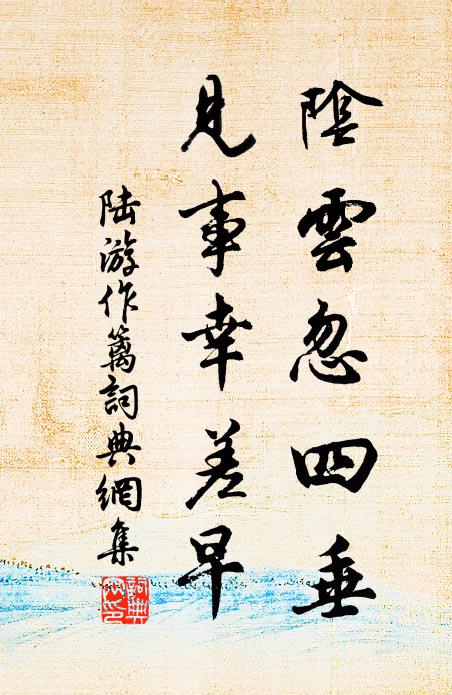 陰雲忽四垂
見事幸差早
陸游作萬詞典網集